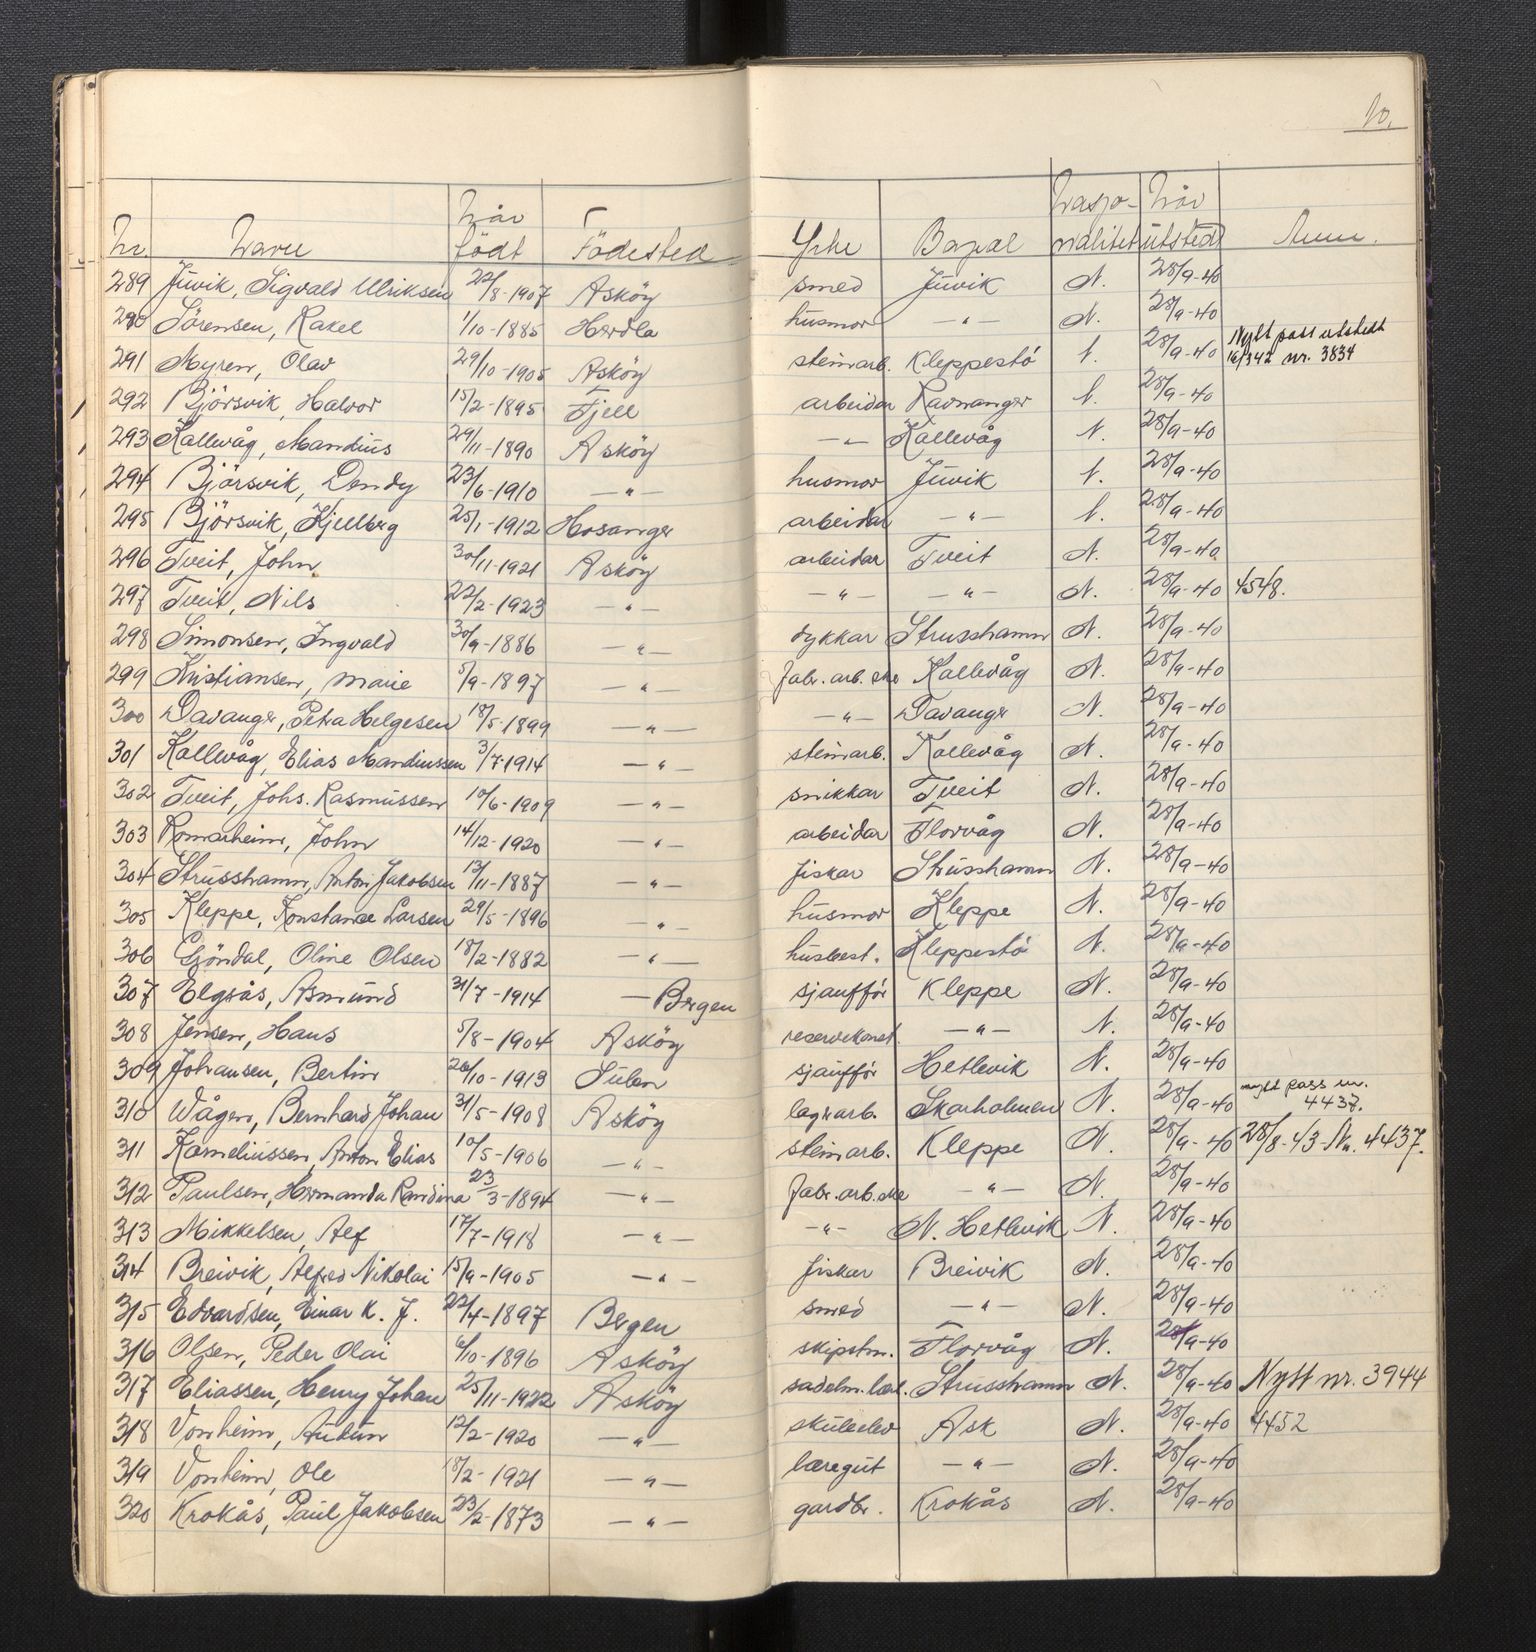 10.
Nr. Navn Når födt Födested Yrke Bopæl Nasjonalitet Når utsted Anm.
289 Juvik, Sigvald Ulriksen 22/8-1907 Asköy smed Juvik N. 28/9-40
290 Sörensen, Rakel 1/10-1885 Herdla husmor —"— N. 28/9-40
291 Myren, Olav 29/10-1905 Asköy steinarb. Kleppestö N. 28/9-40 Nytt pass utstedt 16/3 42 nr. 3834
292 Björsvik, Halvor 15/2-1895 Fjell arbeidar Ravnanger N. 28/9-40
293 Kallevåg, Mandius 29/11-1890 Asköy —"— Kallevåg N. 28/9-40
294 Björsvik, Dendy 23/6-1910 —"— husmor Juvik N. 28/9-40
295 Björsvik, Kjellbrg 25/1-1912 Hosanger arbeidar —"— N. 28/9-40
296 Tveit, John 30/11-1921 Asköy arbeidar Tveit N. 28/9-40
297 Tveit, Nils 22/2-1923 —"— —"— —"— N. 28/9-40 4548.
298 Simonsen, Ingvald 30/9-1886 —"— dykkar Strusshamn N. 28/9-40
299 Kristiansen, Marie 5/9-1897 —"— fabr. arb.ske Kallevåg N. 28/9-40
300 Davanger, Petra Helgesen 18/5-1899 —"— —"— Davanger N. 28/9-40
301 Kallevåg, Elias Mandiussen 3/7-1914 —"— steinarb. Kallevåg N. 28/9-40
302 Tveit, Johs. Rasmussen 10/6-1909 —"— snikkar Tveit N. 28/9-40
303 Romarheim, John 14/12-1920 —"— arbeidar Florvåg N. 28/9-40
304 Strusshamn, Anton Jakobsen 13/11-1887 —"— fiskar Strusshamn N. 28/9-40
305 Kleppe, Konstance Larsen 29/5-1896 —"— husmor Kleppe N. 28/9-40
306 Gjöndal, Oline Olsen 18/2-1882 —"— husbest. Kleppestö N. 28/9-40
307 Elgsås, Asmund 31/7-1914 — Bergen sjaufför Kleppe N. 28/9-40
308 Jensen, Hans 5/8-1904 Asköy reservekonst. —"— N. 28/9-40
309 Johansen, Bertin 20/10-1913 Sulen sjaufför Hetlevik N. 28/9-40
310 Vågen, Bernhard Johan 31/5-1908 Asköy lagerarb. Skarholmen N. 28/9-40 nytt pass nr. 4437.
311 Korneliussen, Anton Elias 10/5-1906 —"— steinarb. Kleppe N. 28/9-40 28/8-43 Nr. 4437.
312 Paulsen, Hermanda Randina 23/3-1894 —"— fabr. arb.ske —"— N. 28/9-40
313 Mikkelsen, Alf 17/7-1918 —"— —"— N. Hetlevik N. 28/9-40
314 Breivik, Alfred Nikolai 15/9-1905 —"— fiskar Breivik N. 28/9-40
315 Edvardsen, Einar K. J. 22/4-1897 Bergen smed —"— N. 28/9-40
316 Olsen, Peder Olai 6/10-1896 Asköy skipstm. Florvåg N. 28/9-40
317 Eliassen, Henry Johan 25/11-1922 Asköy sadelm.lærl. Strusshamn N. 28/9-40 Nytt nr. 3944
318 Vonheim, Audun 12/2-1920 —"— skuleelev Ask N. 28/9-40 4452
319 Vonheim, Ole 18/2-1921 —"— læregut —"— N. 28/9-40
320 Krokås, Paul Jakobsen 23/2-1873 —"— gardbr. Krokås N. 28/9-40